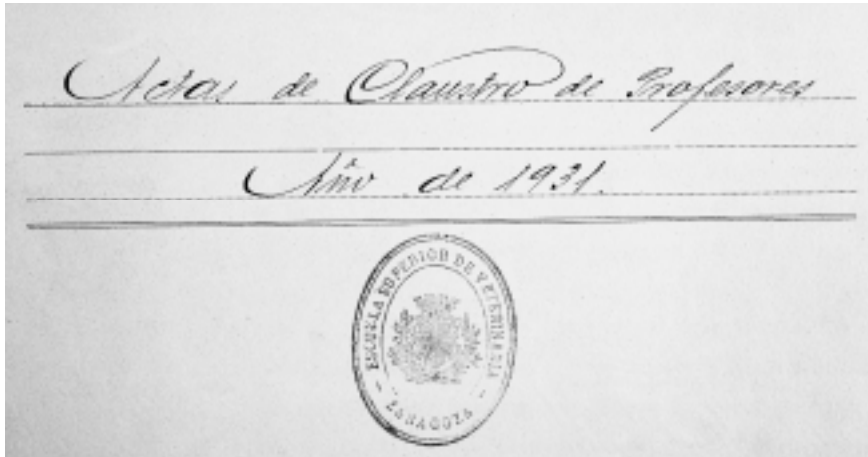 Actas de Claustro de Profesores
Año de 1931.
ESCUELA SUPERIOR DE VETERINARIA
- ZARAGOZA -